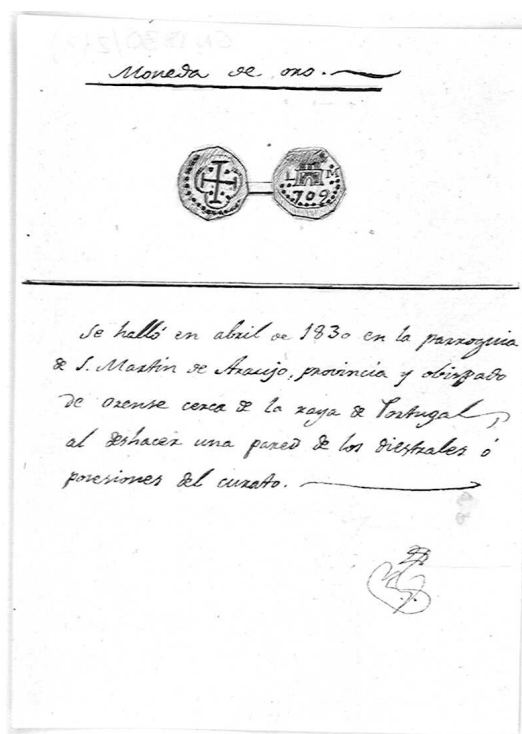 Moneda de oro.
L M
709
Se halló en abril de 1830 en la parroquia
de S. Martin de Araujo, provincia y obispado
de Orense cerca de la raya de Portugal,
al deshacer una pared de los diestrales ó
posesiones del curato.